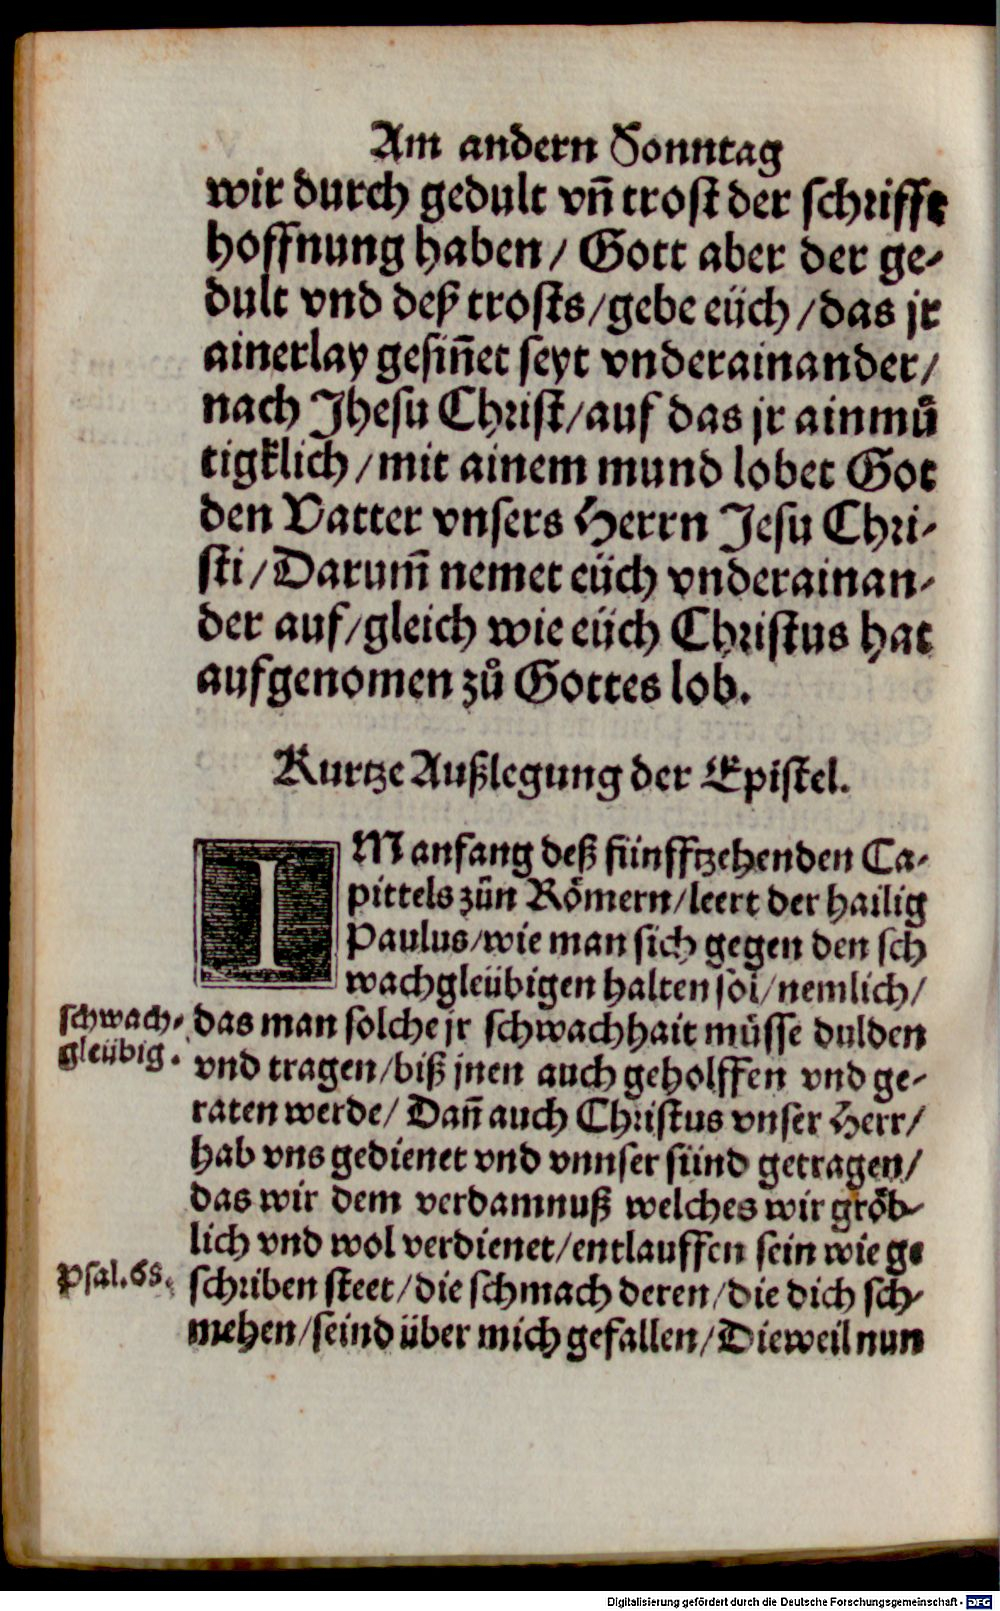 Am andern Sonntag
wir durch gedult vn̄ trost der schrifft
hoffnung haben / Gott aber der ge-
dult vnd deß trosts / gebe eüch / das jr
ainerlay gesin̄et seyt vnderainander /
nach Jhesu Christ / auf das jr ainmuͤ
tigklich / mit ainem mund lobet Got
den Vatter vnsers Herrn Jesu Chri-
sti / Darum̄ nemet eüch vnderainan-
der auf / gleich wie eüch Christus hat
aufgenomen zů Gottes lob.
Kurtze Außlegung der Epistel.
IM anfang deß fünfftzehenden Ca-
pittels zůn Römern / leert der hailig
Paulus / wie man sich gegen den sch
wachgleübigen halten sol / nemlich /
schwach-
gleübig.
das man solche jr schwachhait müsse dulden
vnd tragen / biß jnen auch geholffen vnd ge-
raten werde / Dan̄ auch Christus vnser Herr /
hab vns gedienet vnd vnnser sünd getragen /
das wir dem verdamnuß welches wir gröb-
lich vnd wol verdienet / entlauffen sein wie ge
Psal. 68.
schriben steet / die schmach deren / die dich sch-
mehen / seind über mich gefallen / Dieweil nun
Digitalisierung gefördert durch die Deutsche Forschungsgemeinschaft - DFG